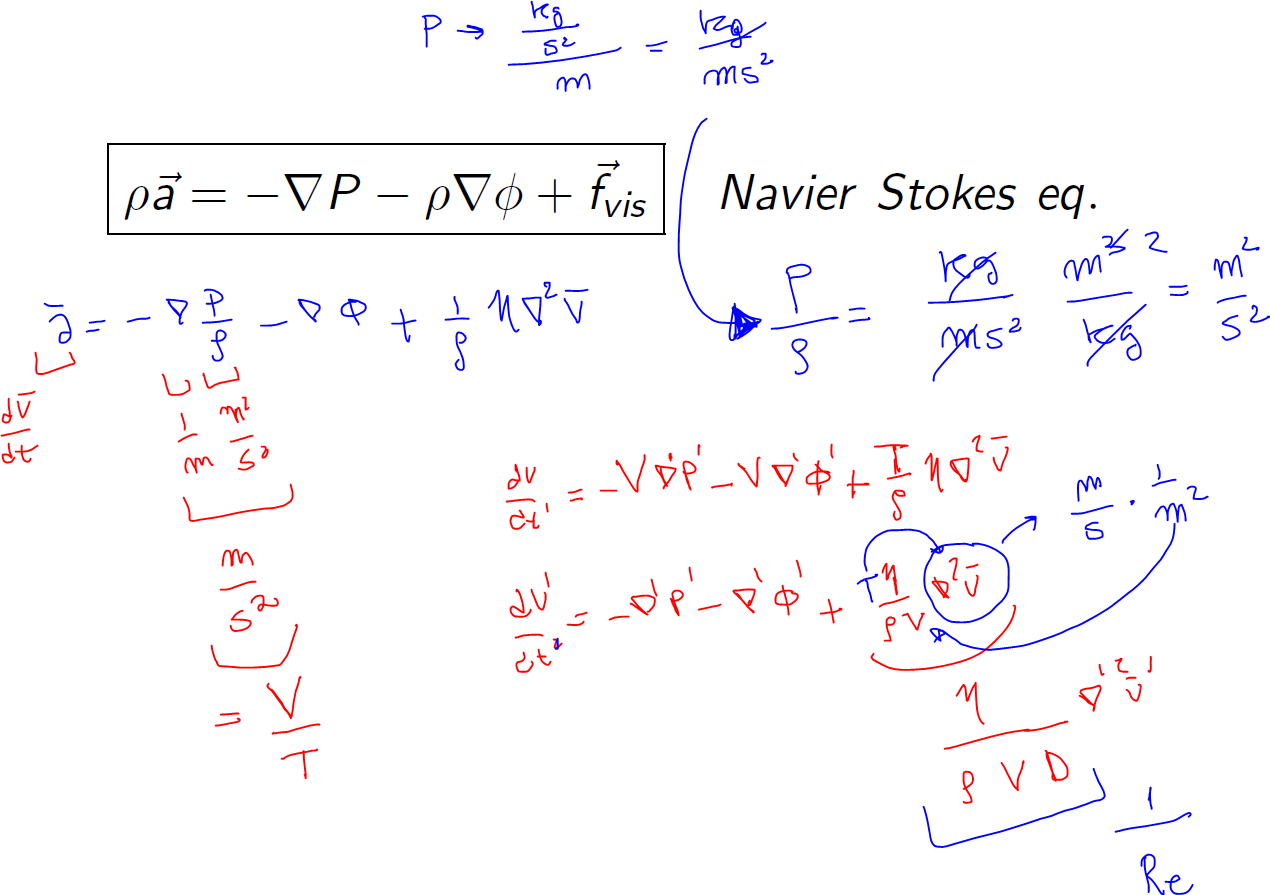 P → (kg/s²)/m = kg/ms²
ρa⃗ = −∇P − ρ∇ϕ + f⃗_vis Navier Stokes eq.
P/ρ = kg/ms² m³ 2/kg = m²/s²
ā = − ∇ P/ρ − ∇ Φ + 1/ρ η∇² V̄
dV̄/dt
1/m m²/s²
m/s²
= V/T
dV/dt' = −V∇'P' − V∇'Φ' + T/ρ η∇²V̄
m/s · 1/m²
dV'/dt' = −∇'P' − ∇'Φ' + Tη/ρV ∇²V̄
η/ρVD ∇'²V̄'
1/Re